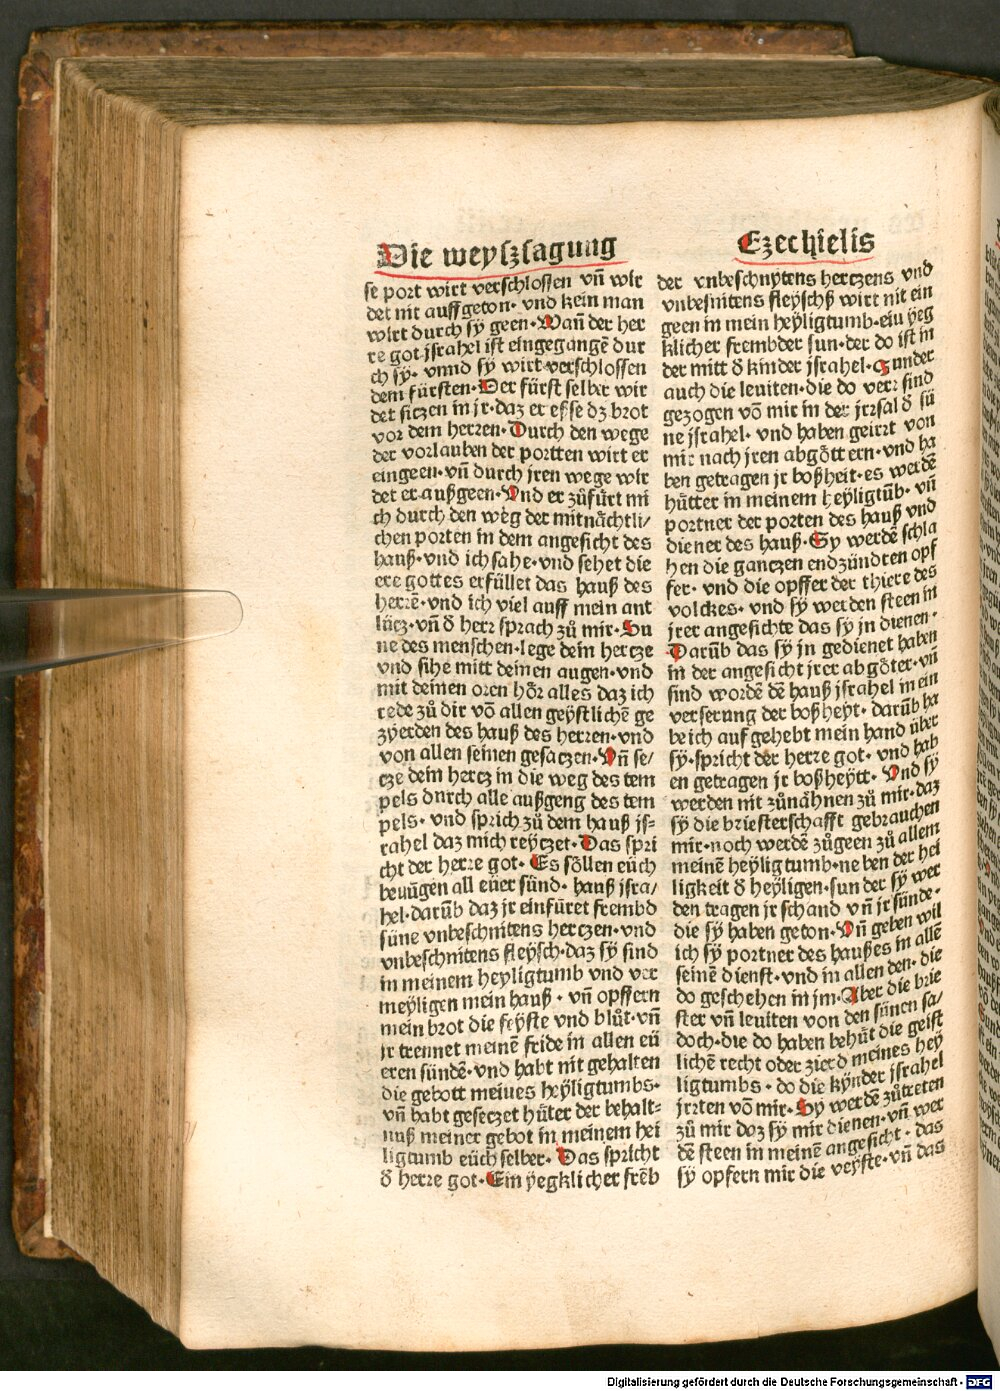 Die weyſzſagung
se port wirt verschlossen vn̄ wir
det nit auffgeton· vnd kein man
wirt durch sÿ geen· Wañ der her
re got jsrahel ist eingegangē dur
ch sÿ· vnnd sÿ wirt verschlossen
dem fürsten· Der fürst selber wir
det siczen in jr· daz er esse dz brot
vor dem herren· Durch den wege
der vorlauben der portten wirt er
eingeen· vn̄ durch jren wege wir
det er außgeen· Vnd er zůfürt mi
ch durch den weg der mitnächtli/
chen porten in dem angesicht des
hauß· vnd ich sahe· vnd sehet die
ere gottes erfüllet das hauß des
herrē· vnd ich viel auff mein ant
lücz· vn̄ d̄ herr sprach zů mir· Su
ne des menschen· lege dein hercze
vnd sihe mitt deinen augen· vnd
mit deinen oren hör alles daz ich
rede zů dir vō allen geÿstlichē ge
zÿerden des hauß des herren· vnd
von allen seinen gesaczen· Vn̄ se/
cze dein hercz in die weg des tem
pels durch alle außgeng des tem
pels· vnd sprich zů dem hauß js=
rahel daz mich reÿczet· Das spri
cht der herre got· Es söllen eüch
bevügen all eüer sünd· hauß jsra/
hel· darüb daz jr einfüret frembd
süne vnbeschnitens herczen· vnd
vnbeschnitens fleÿsch· daz sÿ sind
in meinem heyligtumb vnd ver
meÿligen mein hauß· vn̄ opffern
mein brot die feÿste vnd blůt· vn̄
jr trennet meinē fride in allen eü
eren sündē· vnd habt nit gehalten
die gebott meines heÿligtumbs·
vn̄ habt geseczet hüter der behalt=
nuß meiner gebot in meinem hei
ligtumb eüch selber· Das spricht
d̄ herre got· Ein ÿegklicher frēb
Ezechielis
der vnbeschnÿtens herczens vnd
vnbesnitens fleÿschß wirt nit ein
geen in mein heÿligtumb· ein ÿeg
klicher frembder sun· der do ist in
der mitt d̄ kinder jsrahel· Sunder
auch die leuiten· die do verr sind
gezogen vō mir in der jrrsal d̄ sü
ne jsrahel· vnd haben geirrt von
mir nach jren abgöttern· vnd ha
ben getragen jr boßheit· es werdē
hütter in meinem heÿligtūb· vn̄
portner der porten des hauß vnd
diener des hauß· Sy werdē schla
hen die ganczen endzündten opf
fer· vnd die opffer der thiere des
volckes· vnd sÿ werden steen in
jrer angesichte das sÿ jn dienen·
Darūb das sÿ jn gedienet haben
in der angesicht jrer abgöter· vn̄
sind wordē dē hauß jsrahel in ein
verserung der boßheyt· darūb ha
be ich auf gehebt mein hand über
sÿ· spricht der herre got· vnd hab
en getragen jr boßheÿtt· Vnd sÿ
werden nit zůnähnen zů mir· daz
sÿ die briesterschafft gebrauchen
mir· noch werdē zůgeen zů allem
meinē heÿlig tumb· ne ben der hei
ligkeit d̄ heÿligen· sun der sÿ wer
den tragen jr schand vn̄ jr sünde·
die sÿ haben geton· Vn̄ geben wil
ich sÿ portner des haußes in allē
seinē dienst· vnd in allen den· die
do geschehen in jm· Aber die brie
ster vn̄ leuiten von den sünen sa/
doch· die do haben behüt die geist
lichē recht oder zierd meines hey
ligtumbs· do die kÿnder jsrahel
jrrten vō mir· Sy werdē zůtreten
zů mir daz sÿ mir dienen· vn̄ wer
dē steen in meinē angesicht· das
sÿ opfern mir die veÿste· vn̄ das
Digitalisierung gefördert durch die Deutsche Forschungsgemeinschaft - DFG